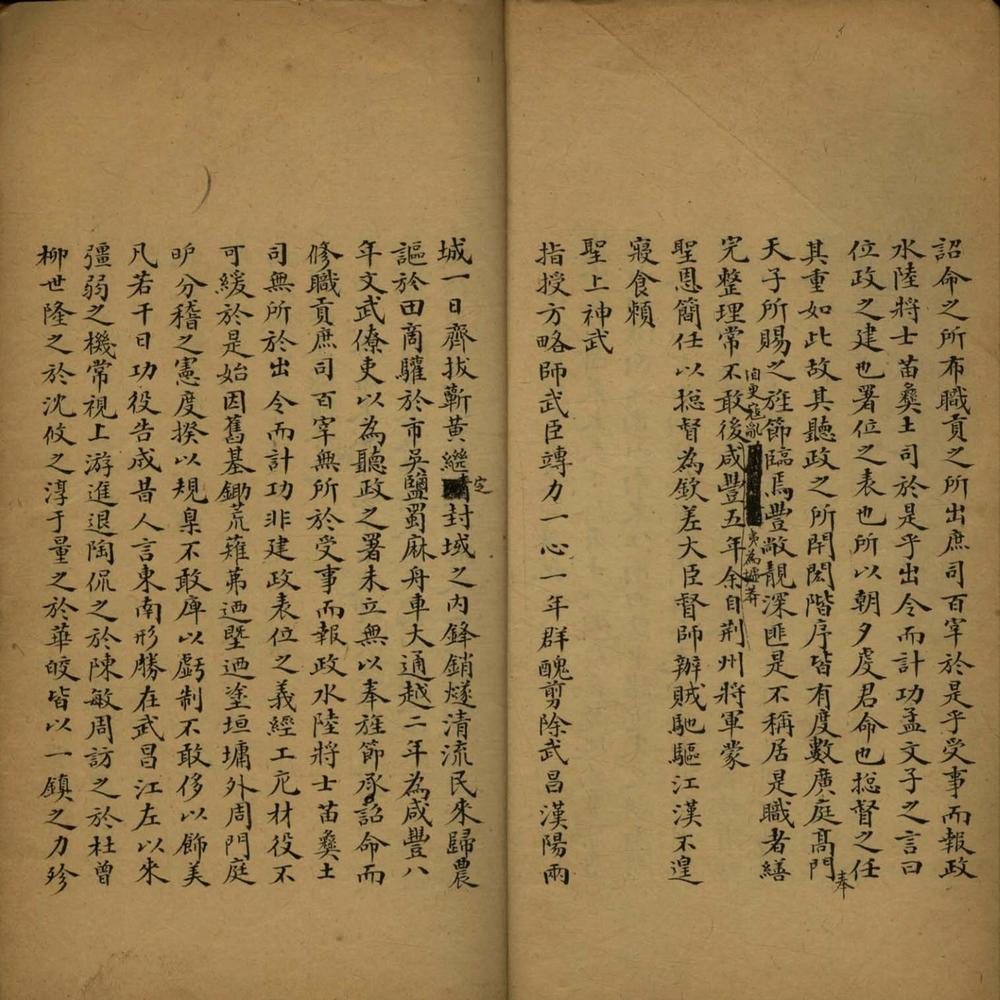 詔命之所布職貢之所出庶司百宰於是乎受事而報政
水陸將士苗彝土司於是乎出令而計功孟文子之言曰
位政之建也署位之表也所以朝夕虔君命也揔督之任
其重如此故其聽政之所閈閎階序皆有度數廣庭高門
奉
天子所賜之旌節臨焉豐敞靚深匪是不稱居是職者繕
完整理常不敢後咸豐五年余自荆州將軍蒙
自更寇亂
夷為墟莽
聖恩簡任以揔督為欽差大臣督師辦賊馳驅江漢不遑
寢食賴
聖上神武
指授方略師武臣竱力一心一年群醜剪除武昌漢陽兩
城一日齊拔蘄黃繼封域之內鋒銷燧清流民來歸農
定
謳於田商驩於市吳鹽蜀麻舟車大通越二年為咸豐八
年文武僚吏以為聽政之署未立無以奉旌節承詔命而
修職貢庶司百宰無所於受事而報政水陸將士苗彝土
司無所於出令而計功非建政表位之義經工庀材役不
可緩於是始因舊基鋤荒薙茀迺塈迺塗垣墉外周門庭
昈分稽之憲度揆以規臬不敢庳以虧制不敢侈以飾美
凡若干日功役告成昔人言東南形勝在武昌江左以來
彊弱之機常視上游進退陶侃之於陳敏周訪之於杜曾
柳世隆之於沈攸之淳于量之於華皎皆以一鎮之力珍